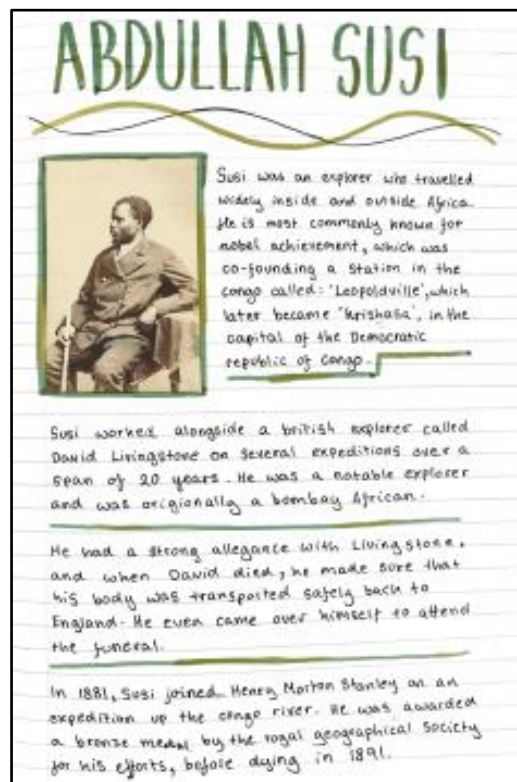 ABDULLAH SUSI
Susi was an explorer who travelled
widely inside and outside Africa.
He is most commonly known for
nobel achievement, which was
co-founding a station in the
congo called: 'Leopoldville', which
later became 'Krishasa', in the
capital of the Democratic
republic of Congo.
Susi worked alongside a british explorer called
David Livingstone on several expeditions over a
span of 20 years. He was a notable explorer
and was origionally a bombay African.
He had a strong allegance with Livingstone,
and when David died, he made sure that
his body was transported safely back to
England. He even came over himself to attend
the funeral.
In 1881, Susi joined Henry Morton Stanley on an
expedition up the congo river. He was awarded
a bronze medal by the royal geographical society
for his efforts, before dying in 1891.